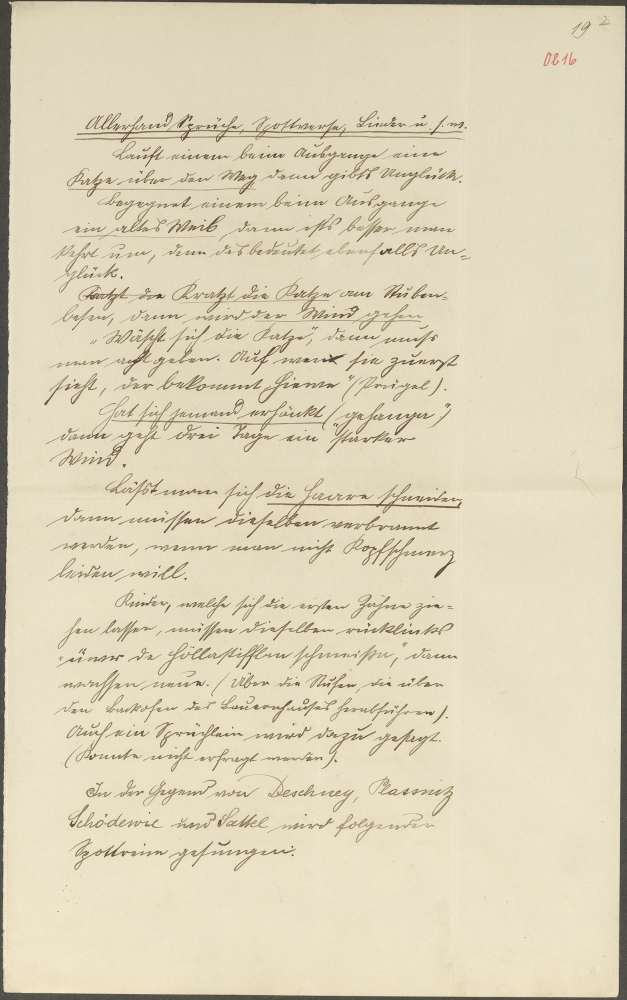 19 2
0816
Allerhand Sprüche, Spottverse, Lieder u. s. w.
Lauft einem beim Ausgange eine
Katze über den Weg, dann gibts Unglück.
Begegnet einem beim Ausgange
ein altes Weib, dann ists besser man
kehrt um, denn das bedeutet ebenfalls Un-
glück.
Kratzt die Kratzt die Katze am Stuben-
besen, dann wird der Wind gehen
"Wäscht sich die Katze", dann muß
man acht geben. Auf wen sie zuerst
sieht, der bekommt "Hiewe" (Prügel).
Hat sich jemand erhänkt ("gehanga")
dann geht drei Tage ein starker
Wind.
Läßt man sich die Haare schneiden,
dann müssen dieselben verbrannt
werden, wenn man nicht Kopfschmerz
leiden will.
Kinder, welche sich die ersten Zähne zie-
hen lassen, müssen dieselben rücklinks
"üwer de Höllastifflen schmeißa", dann
wachsen neue. (Über die Stufen, die über
den Backofen des Bauernhauses herabführen).
Auch ein Sprüchlein wird dazu gesagt.
(Konnte nicht erfragt werden).
In der Gegend von Deschney, Plassnitz
Schödewie und Sattel wird folgender
Spottreim gesungen: